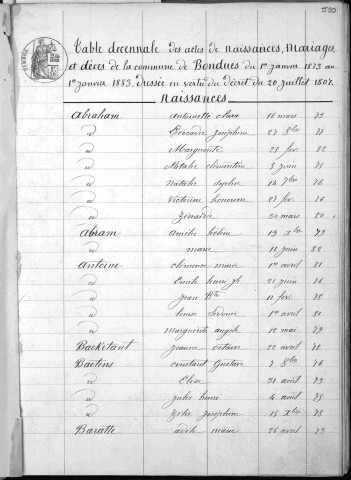 Table decennale des actes de naissances, Mariages,
et décès de la commune de Bondues du 1er janvier 1873 au
1er janvier 1883, dressée en vertu du décret du 20 Juillet 1807.
Naissances
Abraham Antoinette clara 16 mars 73
d Léocadie Joséphine 27 8bre 77
d Marguerite 23 fév. 82
d Natalie clémentine 5 juin 75
d Natalie Sophie 14 7bre 76
d Victorine honorine 27 fév. 76
d Zénaïde 30 mars 80
Abram Amélie 13 Xbre 79
d marie 11 juin 82
Antoine clémence marie 1er avril 81
d Emile henri Jh 21 juin 76
d Jean Bte 11 fév. 78
d Louise Sidonie 1er avril 81
d Marguerite angèle 12 mai 79
Backétant Jeanne octavie 22 avril 78
Baetens constant Gustave 7 8bre 76
d Elise 31 août 73
d Jules henri 4 août 75
d Zélie Joséphine 15 Xbre 78
Baratte adèle marie 26 avril 73